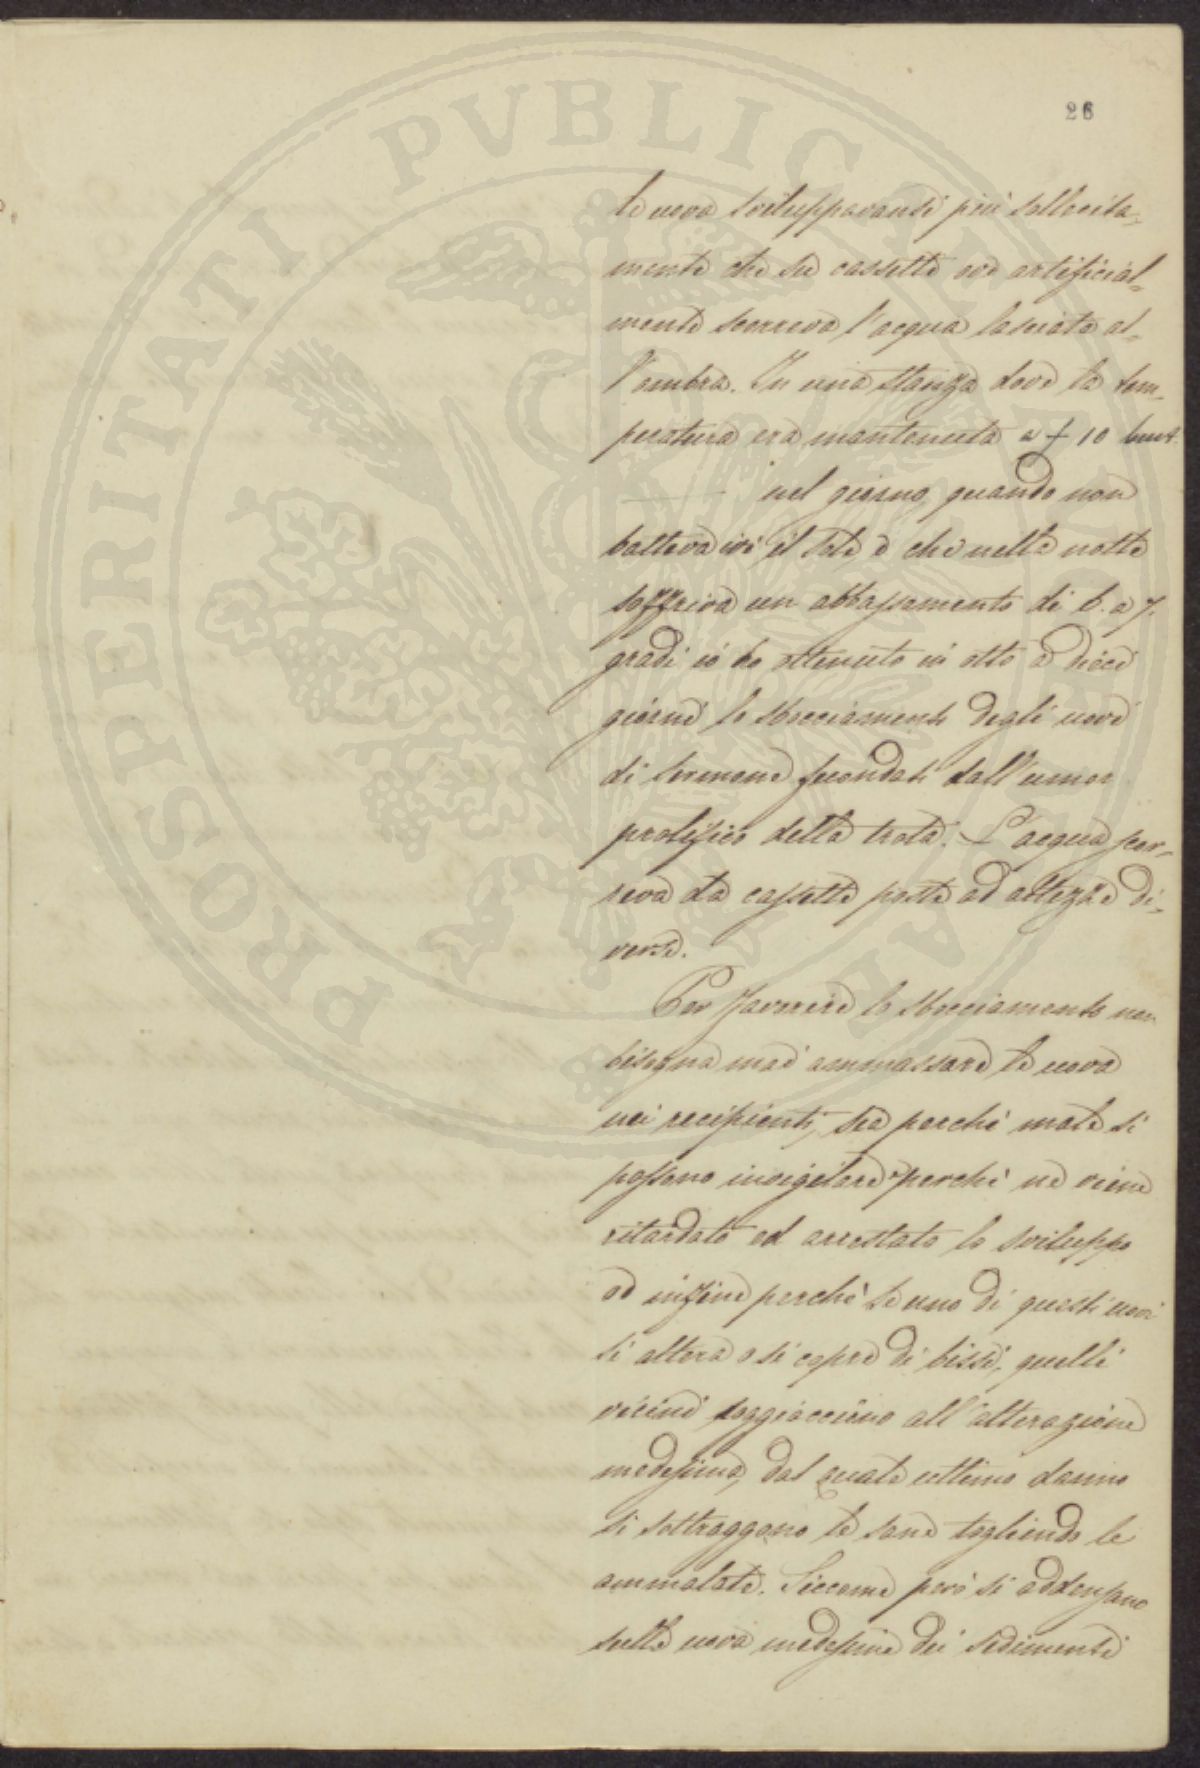 26
PROSPERITATI PVBLICAE AVGENDAE
le uova sviluppavansi più sollecita-
mente che su cassette ove artificial-
mente scorreva l'acqua lasciata al-
l'ombra. In una stanza dove la tem-
peratura era mantenuta a + 10
nel giorno, quando non
batteva ivi il sole, e che nella notte
soffriva un abbassamento di 6. a 7.
gradi io ho ottenuto in otto a dieci
giorni lo sbocciamento degli uovi
di sermone fecondati dall'umor
prolifico della trota. L'acqua scor-
reva da cassette poste ad altezze di-
verse.
Per favorire lo sbocciamento non
bisogna mai ammassare le uova
nei recipienti, sia perchè male si
possono invigilare e perchè ne viene
ritardato ed arrestato lo sviluppo
ed infine perchè se uno di questi uovi
si altera o si copre di bissi, quelli
vicini soggiacciono all'alterazione
medesima, dal quale ultimo danno
si sottraggono le sane togliendo le
ammalate. Siccome però si addensano
sulle uova medesime dei sedimenti